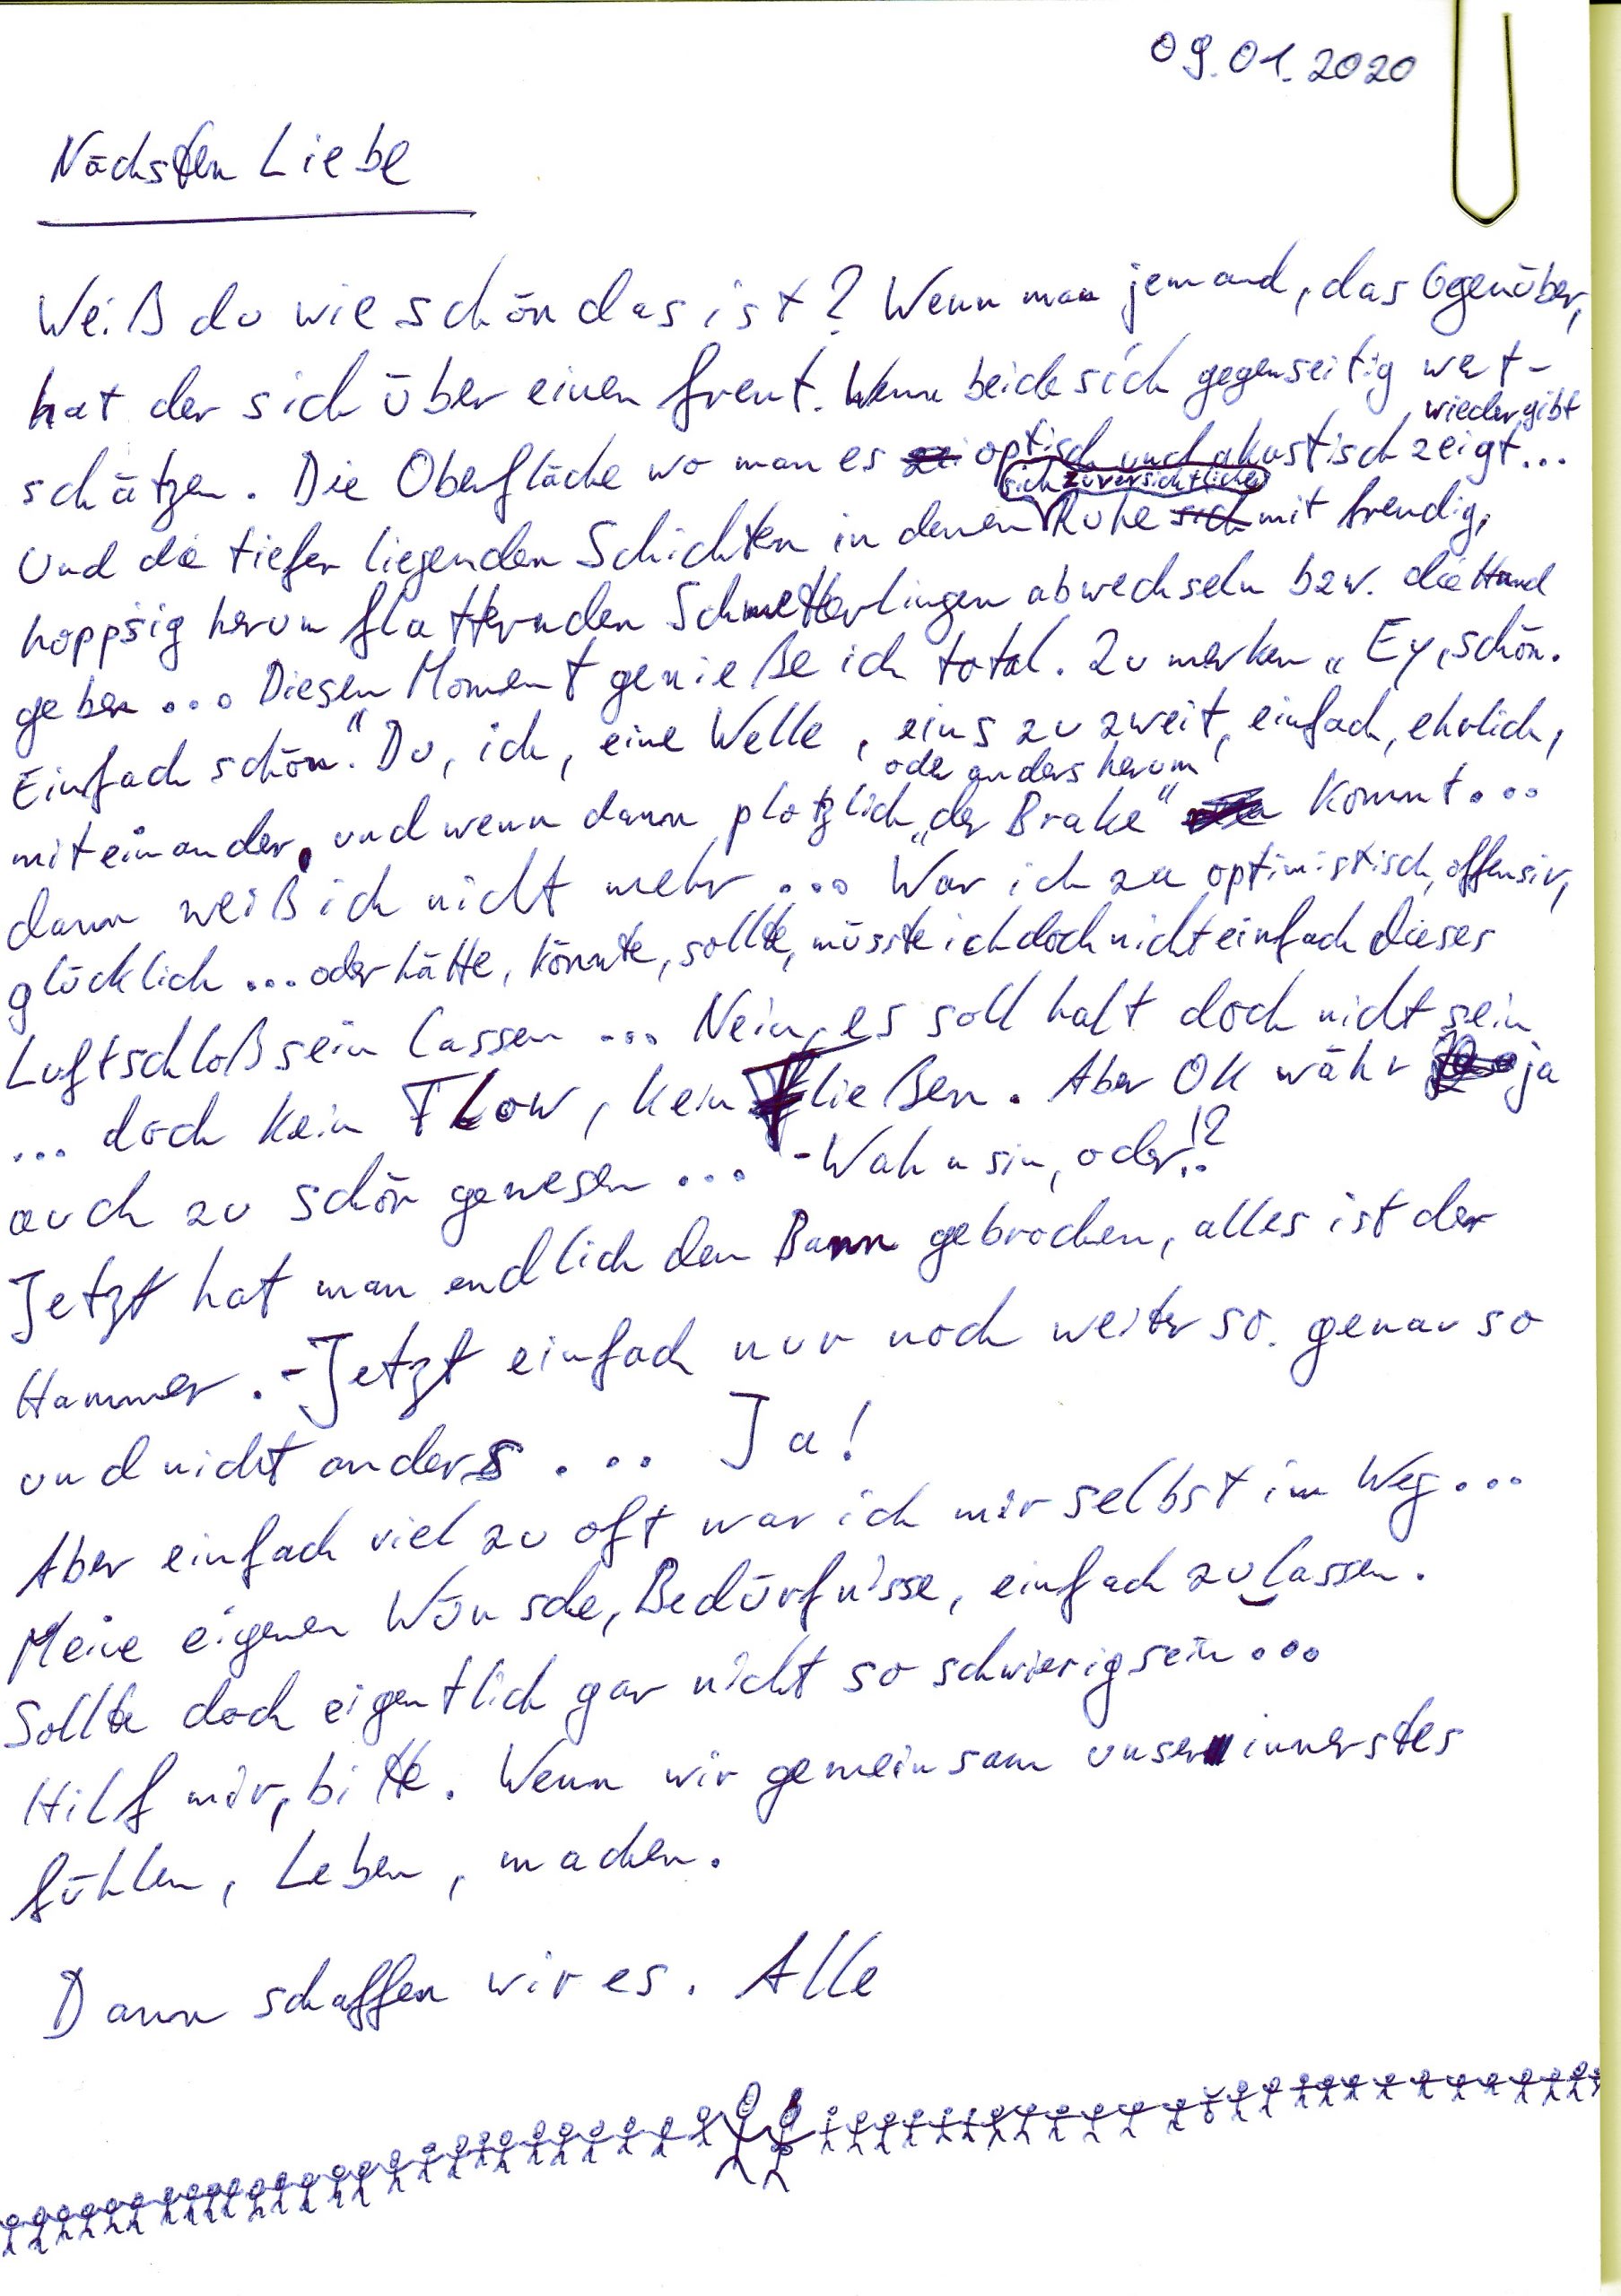 09.01.2020
Nächsten Liebe
Weiß du wie schön das ist? Wenn man jemand, das Gegenüber,
hat der sich über einen freut. Wenn beide sich gegenseitig wert-
wiedergibt
schätzen. Die Oberfläche wo man es optisch und akustisch zeigt...
sich zuversichtliche
Und die tiefer liegenden Schichten in denen Ruhe sich mit freudig,
hoppsig herum flatternden Schmetterlingen abwechseln bzw. die Hand
geben... Diesen Moment genieße ich total. Zu merken „Ey, schön.
Einfach schön." Du, ich, eine Welle, eins zu zweit, einfach, ehrlich,
oder anders herum
miteinander, und wenn dann plötzlich „der Brake" kommt...
dann weiß ich nicht mehr... War ich zu optimistisch, offensiv,
glücklich... oder hätte, könnte, sollte, müsste ich doch nicht einfach dieses
Luftschloß sein lassen... Nein, es soll halt doch nicht sein
... doch kein Flow, kein Fließen. Aber OK währ ja
auch zu schön gewesen... - Wahnsin, oder..!?
Jetzt hat man endlich den Bann gebrochen, alles ist der
Hammer. - Jetzt einfach nur noch weiter so. genau so
und nicht anders... Ja!
Aber einfach viel zu oft war ich mir selbst im Weg...
Meine eigenen Wünsche, Bedürfnisse, einfach zulassen.
Sollte doch eigentlich gar nicht so schwierig sein...
Hilf mir, bitte. Wenn wir gemeinsam unser innerstes
fühlen, Leben, machen.
Dann schaffen wir es. Alle